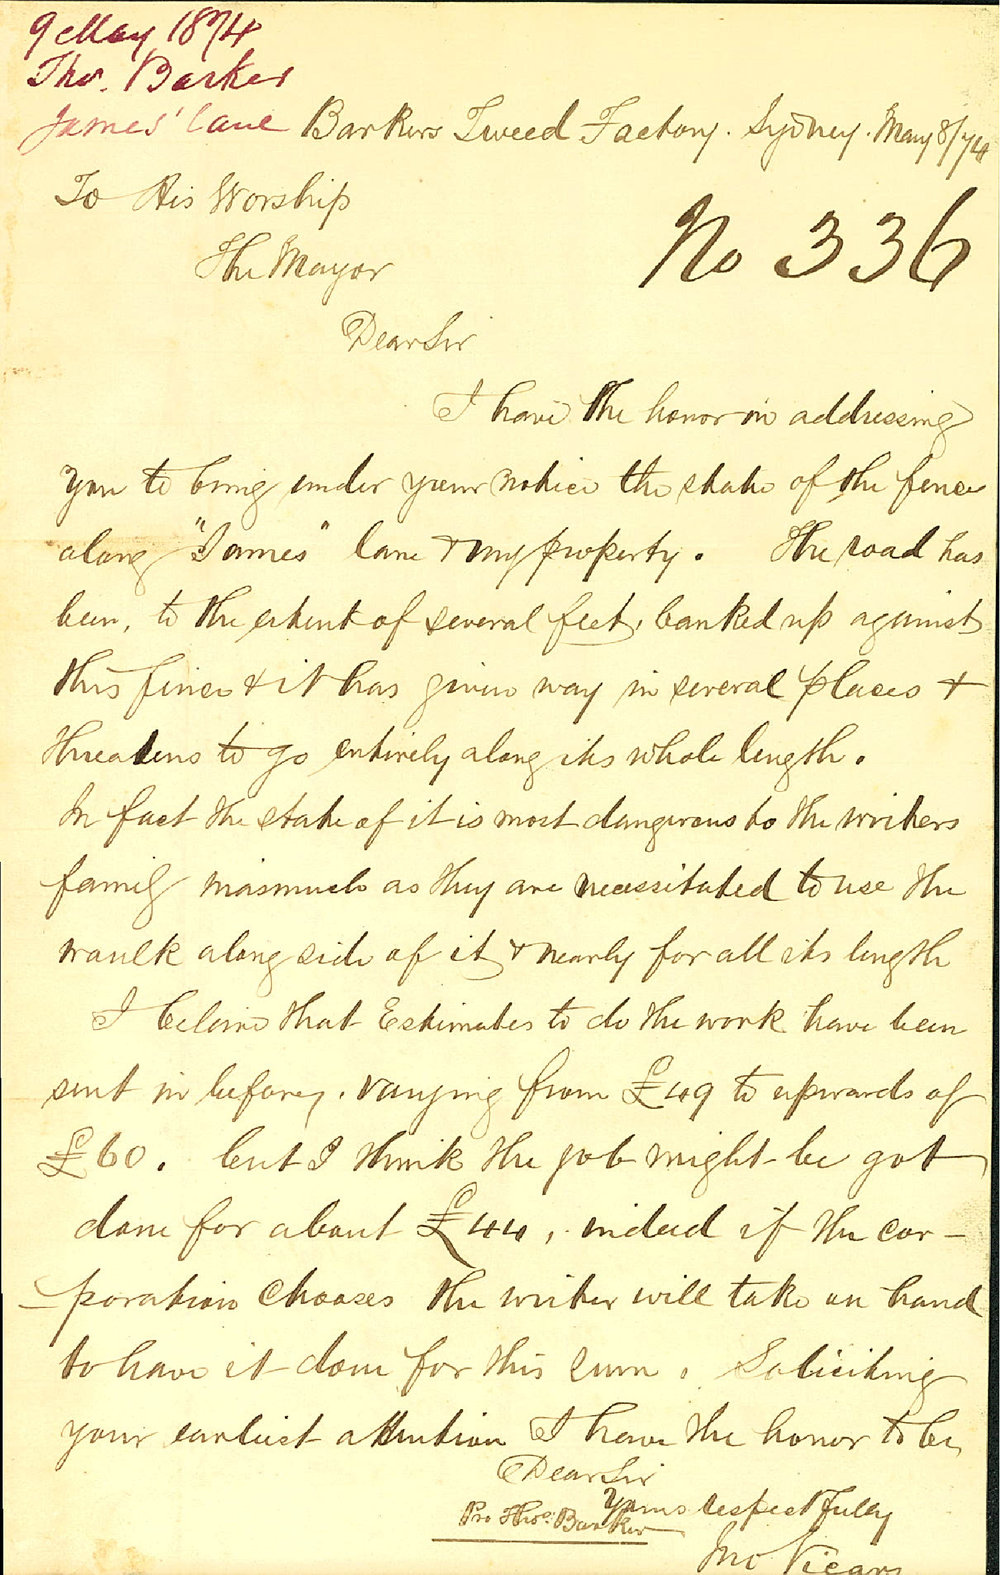 9 May 1874
Thos. Barker
James' Lane Barkers Tweed Factory. Sydney. May 8/74
To His Worship
No 336
The Mayor
Dear Sir
I have the honor in addressing
you to bring under your notice the state of the fence
along "James" lane & my property. The road has
been, to the extent of several feet, banked up against
this fence & it has given way in several places &
threatens to go entirely along its whole length.
In fact the state of it is most dangerous to the writers
family inasmuch as they are necessitated to use the
waulk along side of it & nearly for all its length
I beleive that Estimates to do the work have been
sent in before, varying from £49 to upwards of
£60. but I think the job might be got
done for about £44, indeed if the cor-
-poration chooses the writer will take on hand
to have it done for this sum. Soliciting
your earliest attention I have the honor to be
Dear Sir
Yours respectfully
Pro Thos. Barker
Jno Vicars